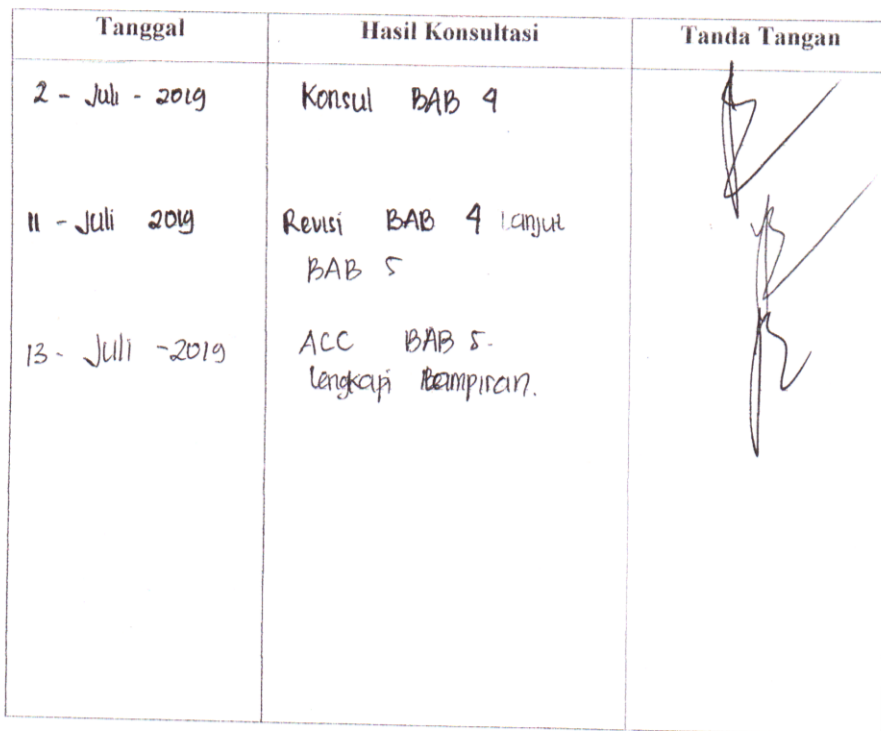 Tanggal Hasil Konsultasi Tanda Tangan
2 - Juli - 2019 Konsul BAB 4
11 - Juli 2019 Revisi BAB 4 Lanjut
BAB 5
13 - Juli - 2019 ACC BAB 5.
lengkapi lampiran.